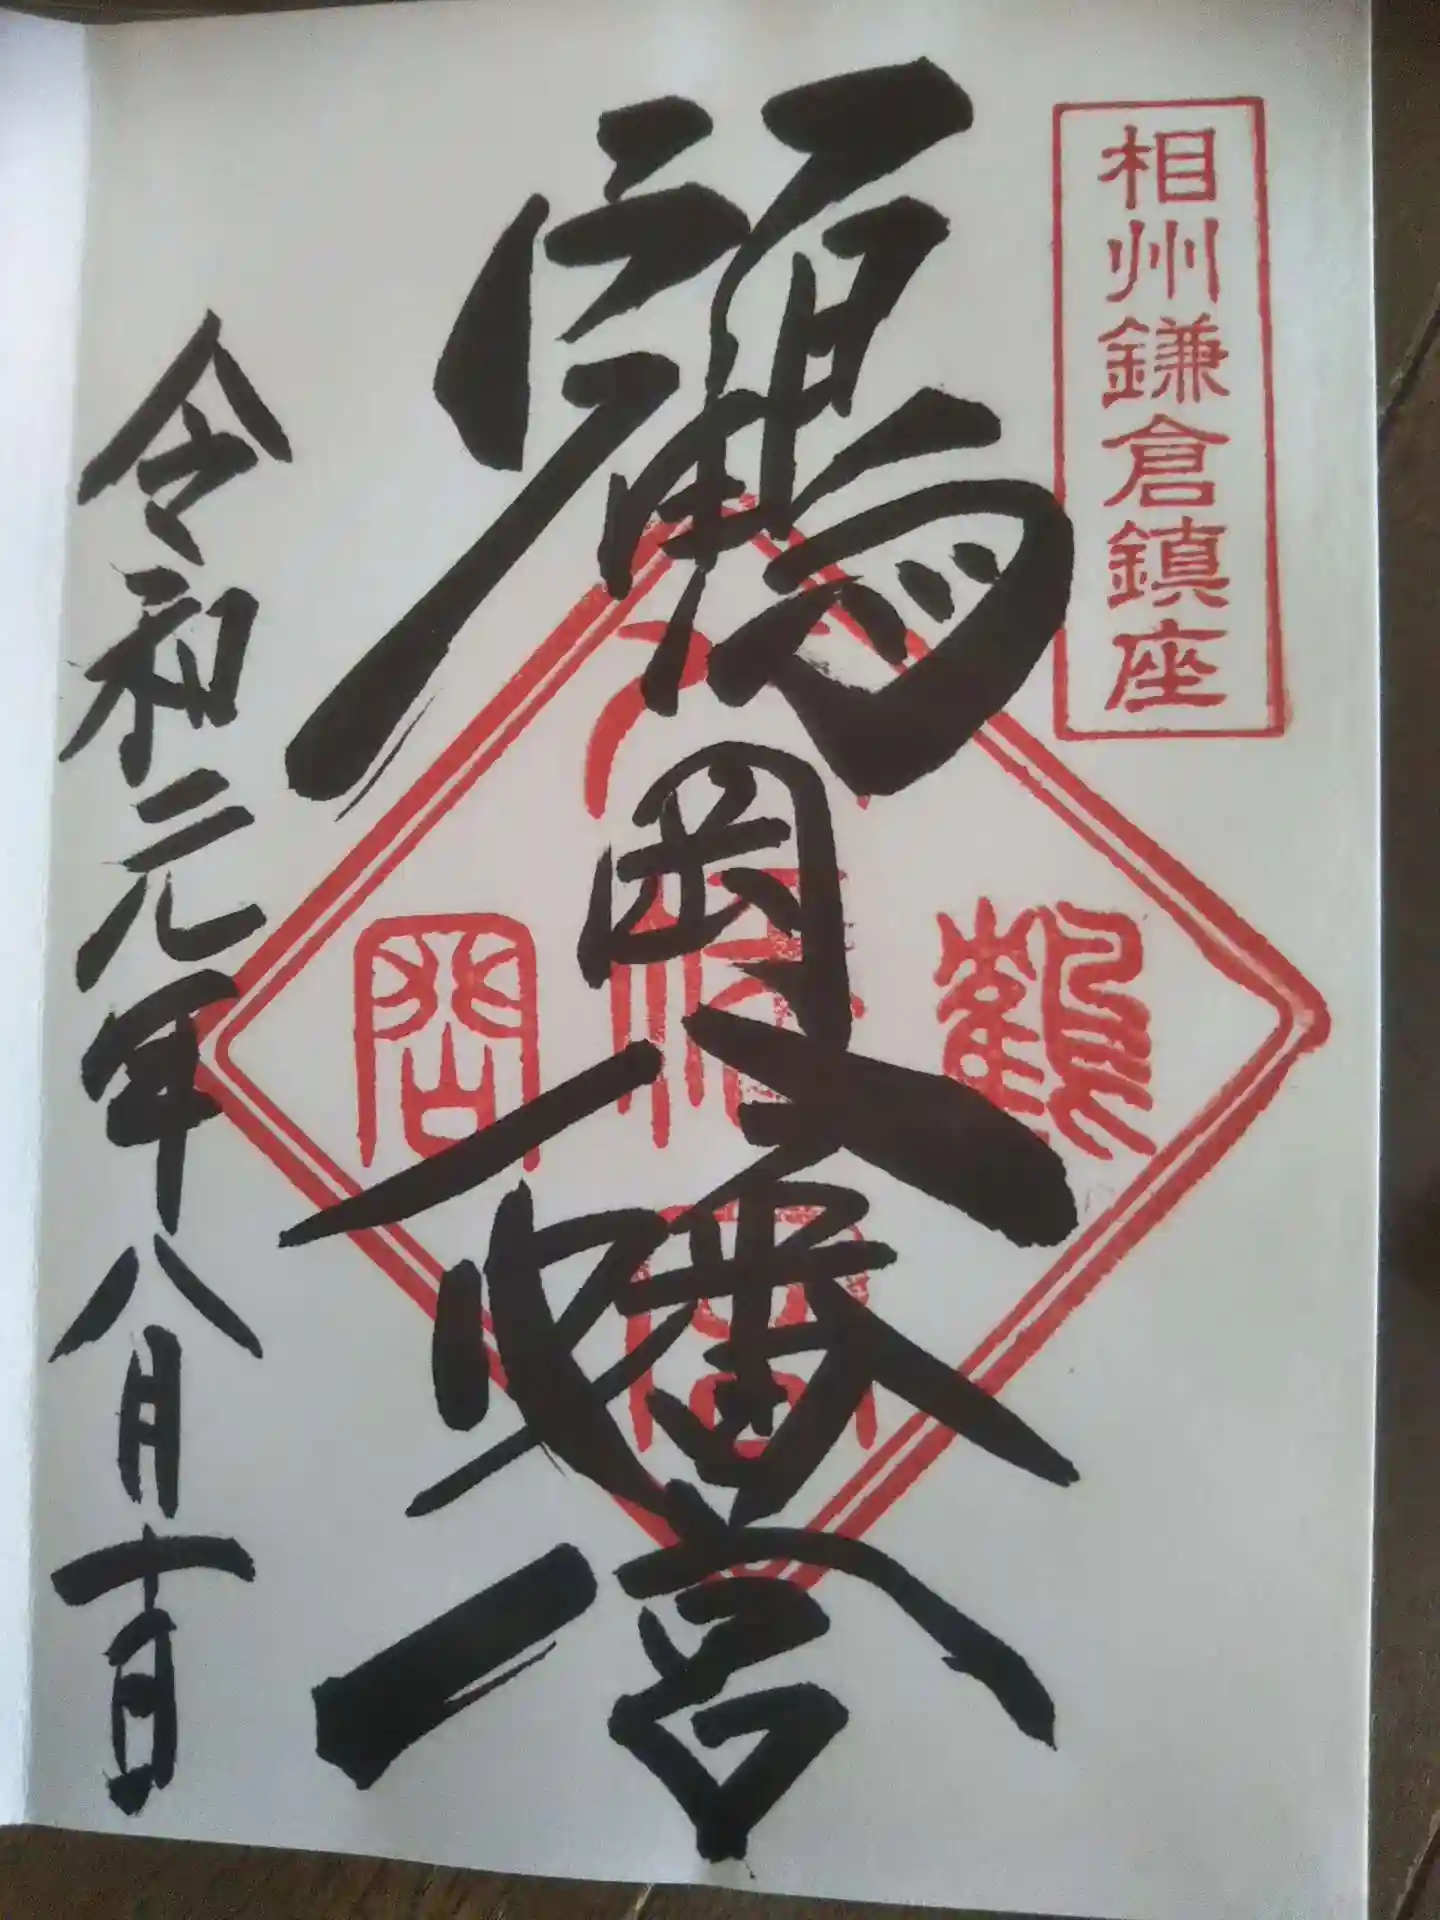 相州鎌倉鎮座
鶴岡八幡宮
令和元年八月十日
鶴
岡